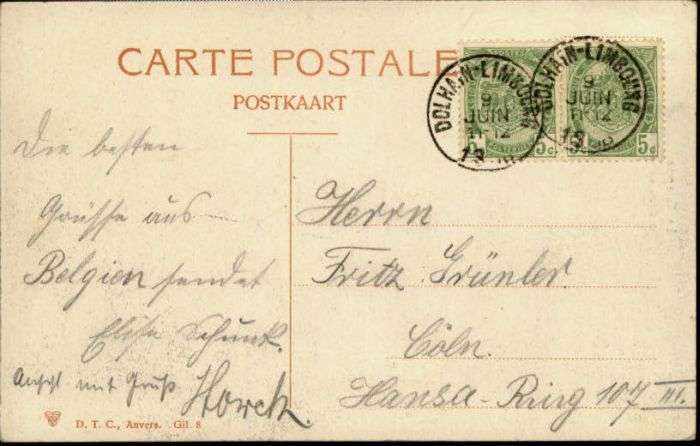 CARTE POSTALE
POSTKAART
DOLHAIN-LIMBOURG
9
JUIN
11-12
DOLHAIN-LIMBOURG
9
JUIN
11-12
5c
5c
Die besten
Grüsse aus
Belgien sendet
Elisa Schunk.
mit Gruß
Herrn
Fritz Grünler.
Cöln.
Hansa-Ring 107 III.
D. T. C., Anvers. Gil. 8